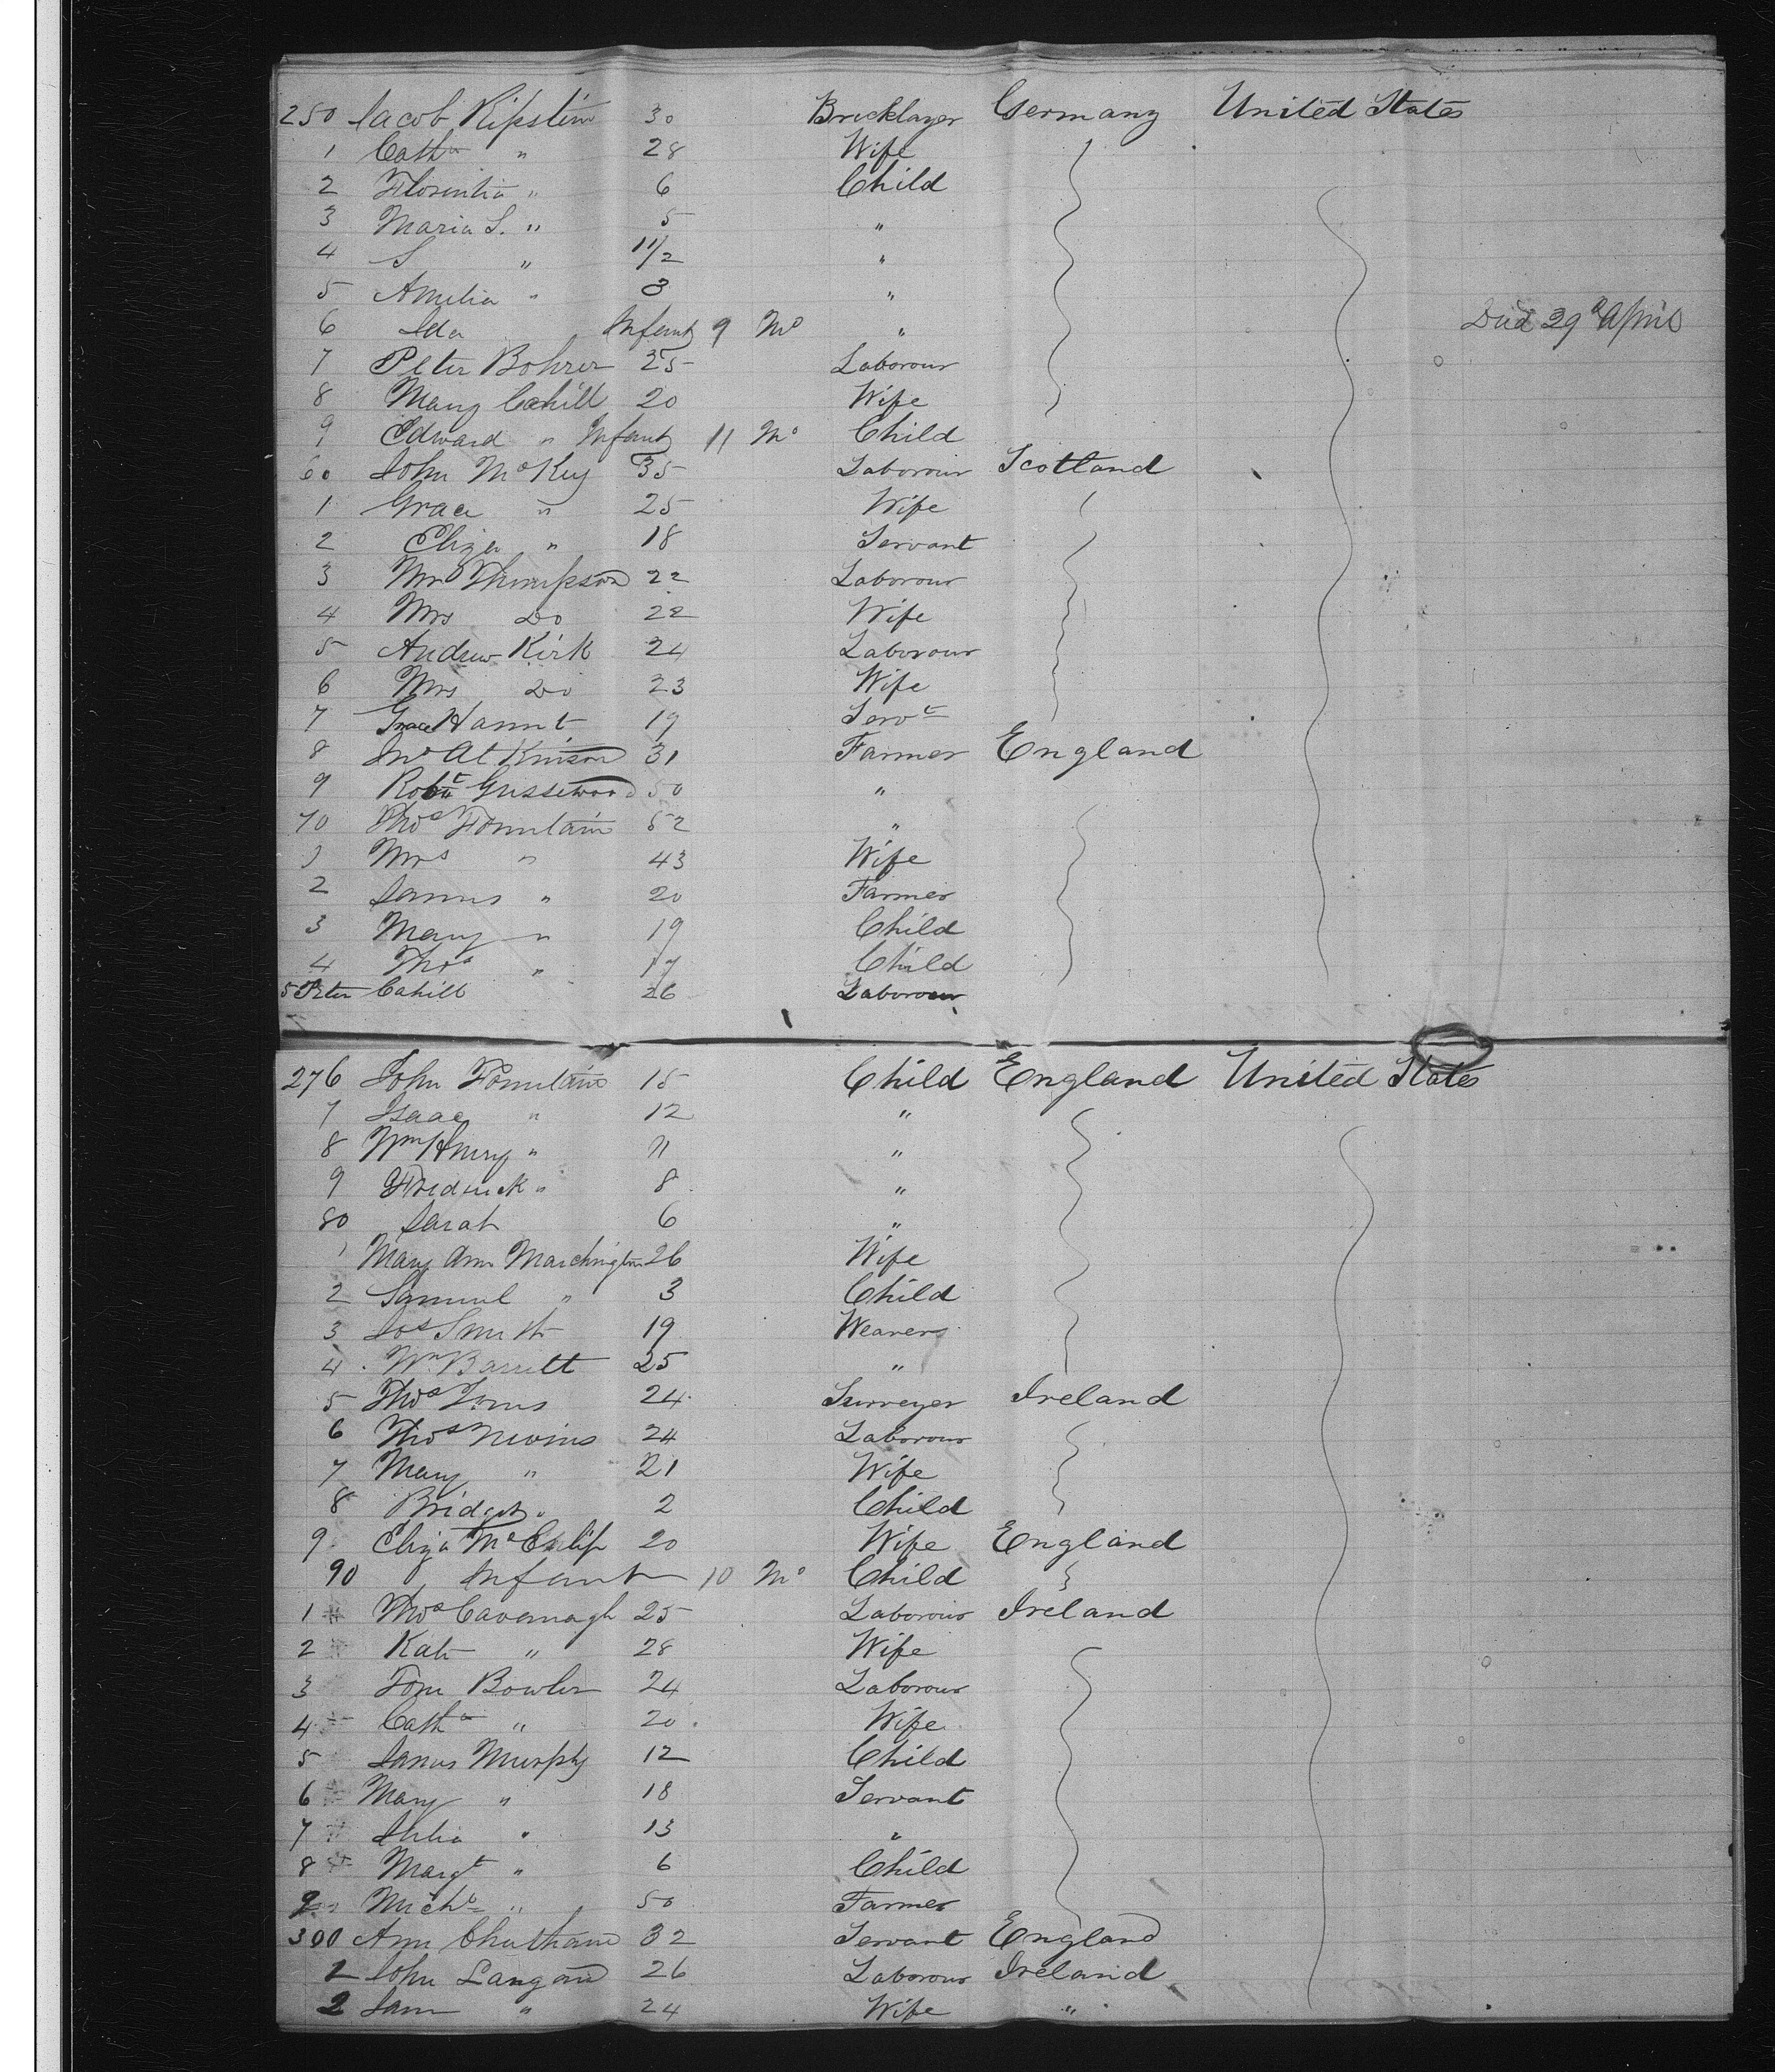 250 Jacob Ripstein 30 Bricklayer Germany United States
1 Cath " 28 Wife
2 Florentia " 6 Child
3 Maria S. " 5 "
4 S " 1 1/2 "
5 Amelia " 3 "
6 Ida Infant 9 Mo " Died 29 April
7 Peter Bohrer 25 Laborour
8 Mary Cahill 20 Wife
9 Edward " Infant 11 Mo Child
60 John McKey 35 Laborour Scotland
1 Grace " 25 Wife
2 Eliza " 18 Servant
3 Mr Thompson 22 Laborour
4 Mrs Do 22 Wife
5 Andrew Kirk 24 Laborour
6 Mrs Do 23 Wife
7 Grace 19 Servt
8 Jno Atkinson 31 Farmer England
9 Robt 50 "
70 Thos Fountain 52 "
1 Mrs " 43 Wife
2 James " 20 Farmer
3 Mary " 19 Child
4 Thos " 17 Child
5 Peter Cahill 26 Laborour
276 John Fountain 15 Child England United States
7 Isaac " 12 "
8 Wm Henry " 11 "
9 Frederick " 8 "
80 Sarah 6 "
1 Mary Ann Marchington 26 Wife
2 Samuel " 3 Child
3 Jos Smith 19 Weaver
4 Wm Barrett 25 "
5 Thos 24 Surveyer Ireland
6 Thos Nevins 24 Laborour
7 Mary " 21 Wife
8 Bridget " 2 Child
9 Eliza 20 Wife England
90 Infant 10 Mo Child
1 Thos Cavernagh 25 Laborour Ireland
2 Kate " 28 Wife
3 Tom Bowler 24 Laborour
4 Cath " 20 Wife
5 James Murphy 12 Child
6 Mary " 18 Servant
7 Julia " 13 "
8 Margt " 6 Child
9 Michl " 50 Farmer
300 Ann Cheetham 32 Servant England
1 John Langan 26 Laborour Ireland
2 Jane " 24 Wife "